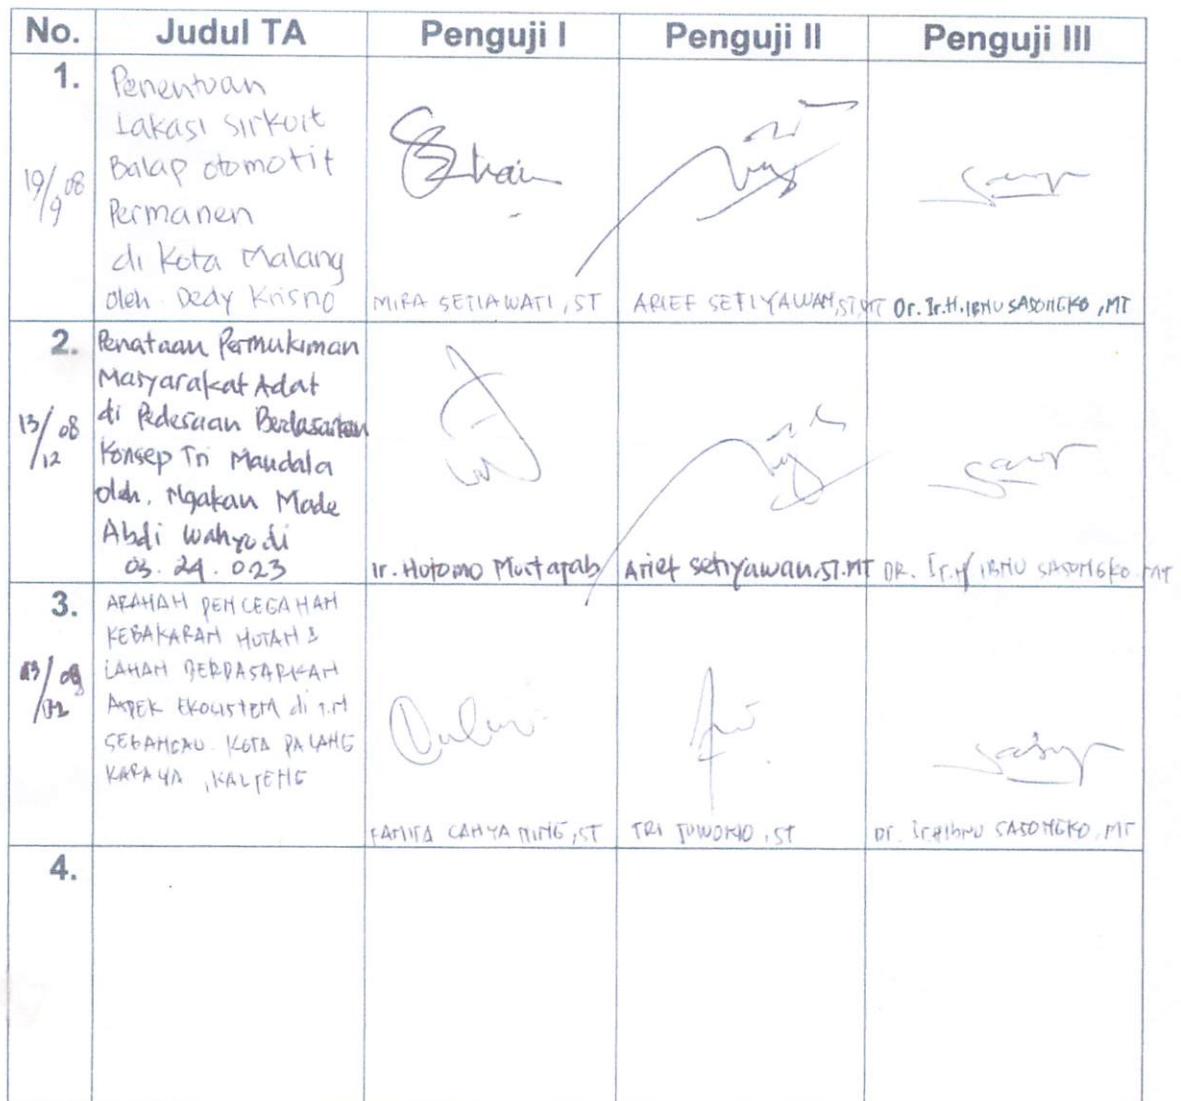 No. Judul TA Penguji I Penguji II Penguji III
1.
19/9 08
Penentuan
Lakasi sirkuit
Balap otomotif
Permanen
di Kota Malang
oleh. Dedy Krisno
MIRA SETIAWATI, ST
ARIEF SETIYAWAN, ST, MT
Dr. Ir. H. IBNU SASONGKO, MT
2.
13/12 08
Penataan Permukiman
Masyarakat Adat
di Pedesaan Berdasarkan
Konsep Tri Mandala
oleh. Ngakan Made
Abdi Wahyudi
03. 24. 023
Ir. Hutomo Mustajab
Arief Setiyawan, ST. MT
DR. Ir. H IBNU SASONGKO MT
3.
13/12 08
ARAHAN PENCEGAHAN
KEBAKARAN HUTAN &
LAHAN BERDASARKAN
ASPEK EKOSISTEM di T.N
SEBANGAU KOTA PALANG
KARAYA, KALTENG
CAHYA NING, ST
TRI JUWONO, ST
Dr. Ir. H Ibnu SASONGKO, MT
4.